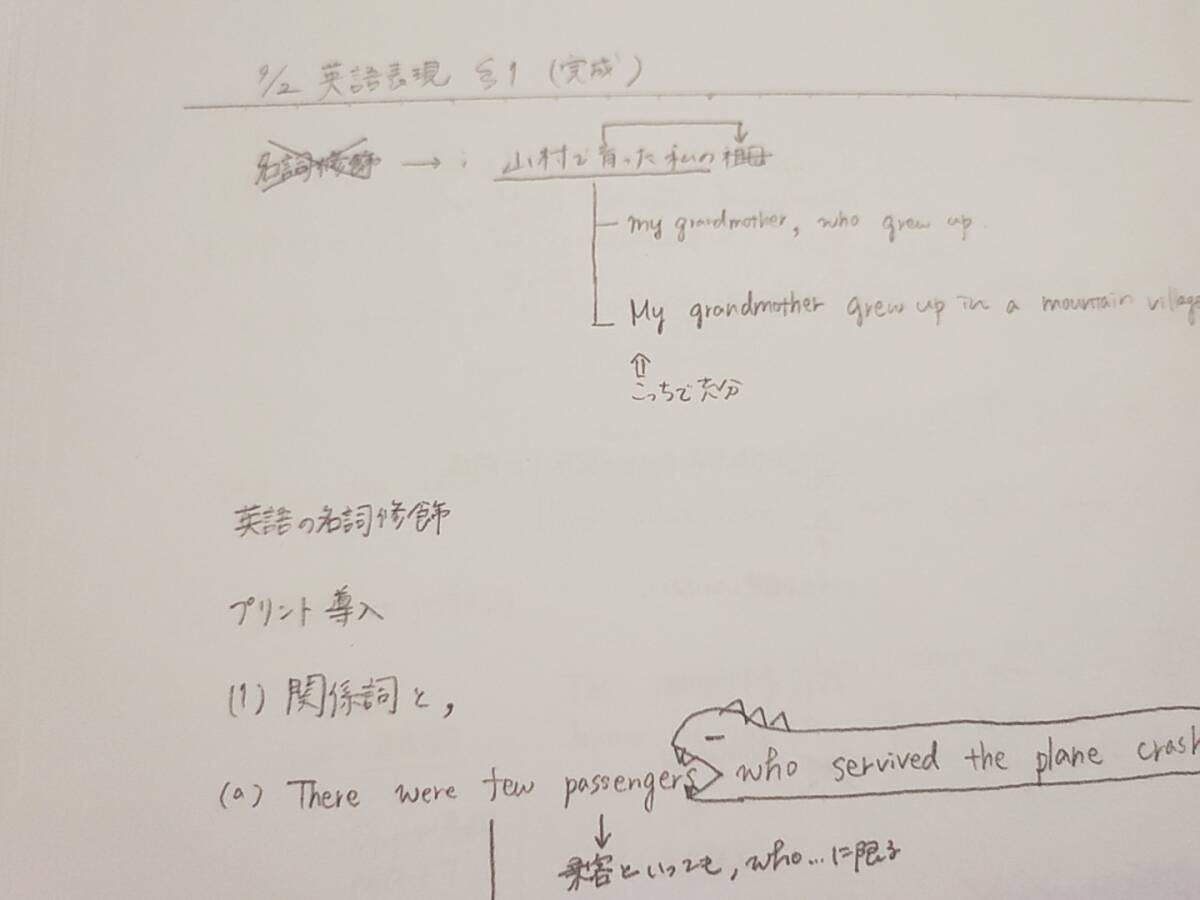 9/2 英語表現 §1 (完成)
名詞修飾 → : 山村で育った私の祖母
my grandmother, who grew up.
My grandmother grew up in a mountain village
こっちで充分
英語の名詞修飾
プリント導入
(1) 関係詞と,
(a) There were few passengers who servived the plane crash
乗客といっても, who...に限る